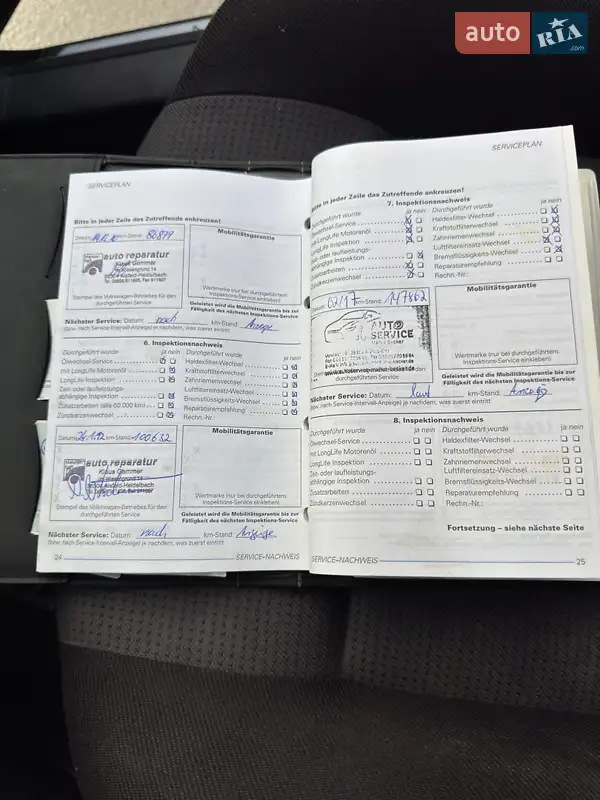 auto RIA
.com
SERVICEPLAN
Bitte in jeder Zeile das Zutreffende ankreuzen!
Datum: km-Stand: 86899
auto reparatur
Klaus Gemmer
36304 Alsfeld-Heidelbach
Stempel des Volkswagen-Betriebs für den
durchgeführten Service
Mobilitätsgarantie
Wertmarke (nur bei durchgeführtem
Inspektions-Service einkleben)
Geleistet wird die Mobilitätsgarantie bis zur
Fälligkeit des nächsten Inspektions-Service
Nächster Service: Datum: nach km-Stand: Anzeige
(bzw. nach Service-Intervall-Anzeige) je nachdem, was zuerst eintritt
6. Inspektionsnachweis
Durchgeführt wurde ja nein
Ölwechsel-Service
mit LongLife Motorenöl
LongLife Inspektion
Zeit- oder laufleistungs-
abhängige Inspektion
Zusatzarbeiten
Zündkerzenwechsel
Durchgeführt wurde ja nein
Haldexfilter-Wechsel
Kraftstoffilterwechsel
Zahnriemenwechsel
Luftfiltereinsatz-Wechsel
Bremsflüssigkeits-Wechsel
Reparaturempfehlung
Rechn.-Nr.:
Datum: km-Stand: 100632
auto reparatur
Klaus Gemmer
36304 Alsfeld-Heidelbach
Stempel des Volkswagen-Betriebs für den
durchgeführten Service
Mobilitätsgarantie
Wertmarke (nur bei durchgeführtem
Inspektions-Service einkleben)
Geleistet wird die Mobilitätsgarantie bis zur
Fälligkeit des nächsten Inspektions-Service
Nächster Service: Datum: nach km-Stand: Anzeige
(bzw. nach Service-Intervall-Anzeige) je nachdem, was zuerst eintritt
24 SERVICE-NACHWEIS
SERVICEPLAN
Bitte in jeder Zeile das Zutreffende ankreuzen!
7. Inspektionsnachweis
Durchgeführt wurde ja nein
Ölwechsel-Service
mit LongLife Motorenöl
LongLife Inspektion
Zeit- oder laufleistungs-
abhängige Inspektion
Zusatzarbeiten
Zündkerzenwechsel
Durchgeführt wurde ja nein
Haldexfilter-Wechsel
Kraftstoffilterwechsel
Zahnriemenwechsel
Luftfiltereinsatz-Wechsel
Bremsflüssigkeits-Wechsel
Reparaturempfehlung
Rechn.-Nr.:
km-Stand: 147862
AUTO
SERVICE
durchgeführten Service
Mobilitätsgarantie
Wertmarke (nur bei durchgeführtem
Inspektions-Service einkleben)
Geleistet wird die Mobilitätsgarantie bis zur
Fälligkeit des nächsten Inspektions-Service
Nächster Service: Datum: laut km-Stand: Anzeige
(bzw. nach Service-Intervall-Anzeige) je nachdem, was zuerst eintritt
8. Inspektionsnachweis
Durchgeführt wurde ja nein
Ölwechsel-Service
mit LongLife Motorenöl
LongLife Inspektion
Zeit- oder laufleistungs-
abhängige Inspektion
Zusatzarbeiten
Zündkerzenwechsel
Durchgeführt wurde ja nein
Haldexfilter-Wechsel
Kraftstoffilterwechsel
Zahnriemenwechsel
Luftfiltereinsatz-Wechsel
Bremsflüssigkeits-Wechsel
Reparaturempfehlung
Rechn.-Nr.:
Fortsetzung – siehe nächste Seite
SERVICE-NACHWEIS 25